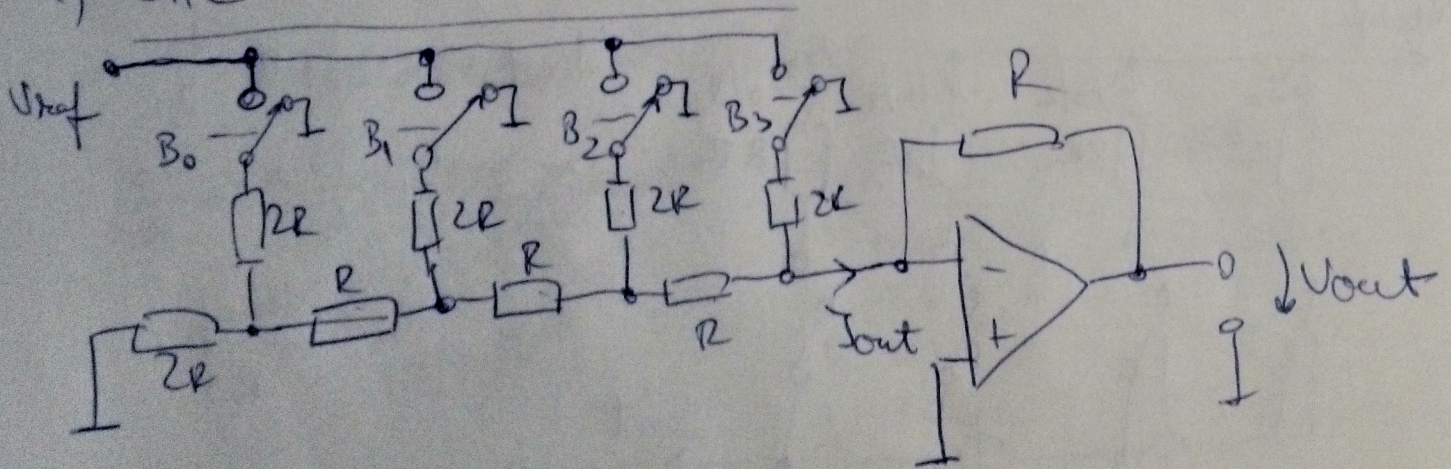 Uref
B0
B1
B2
B3
R
2R
2R
2R
2R
R
R
R
2R
Iout
-
+
Vout